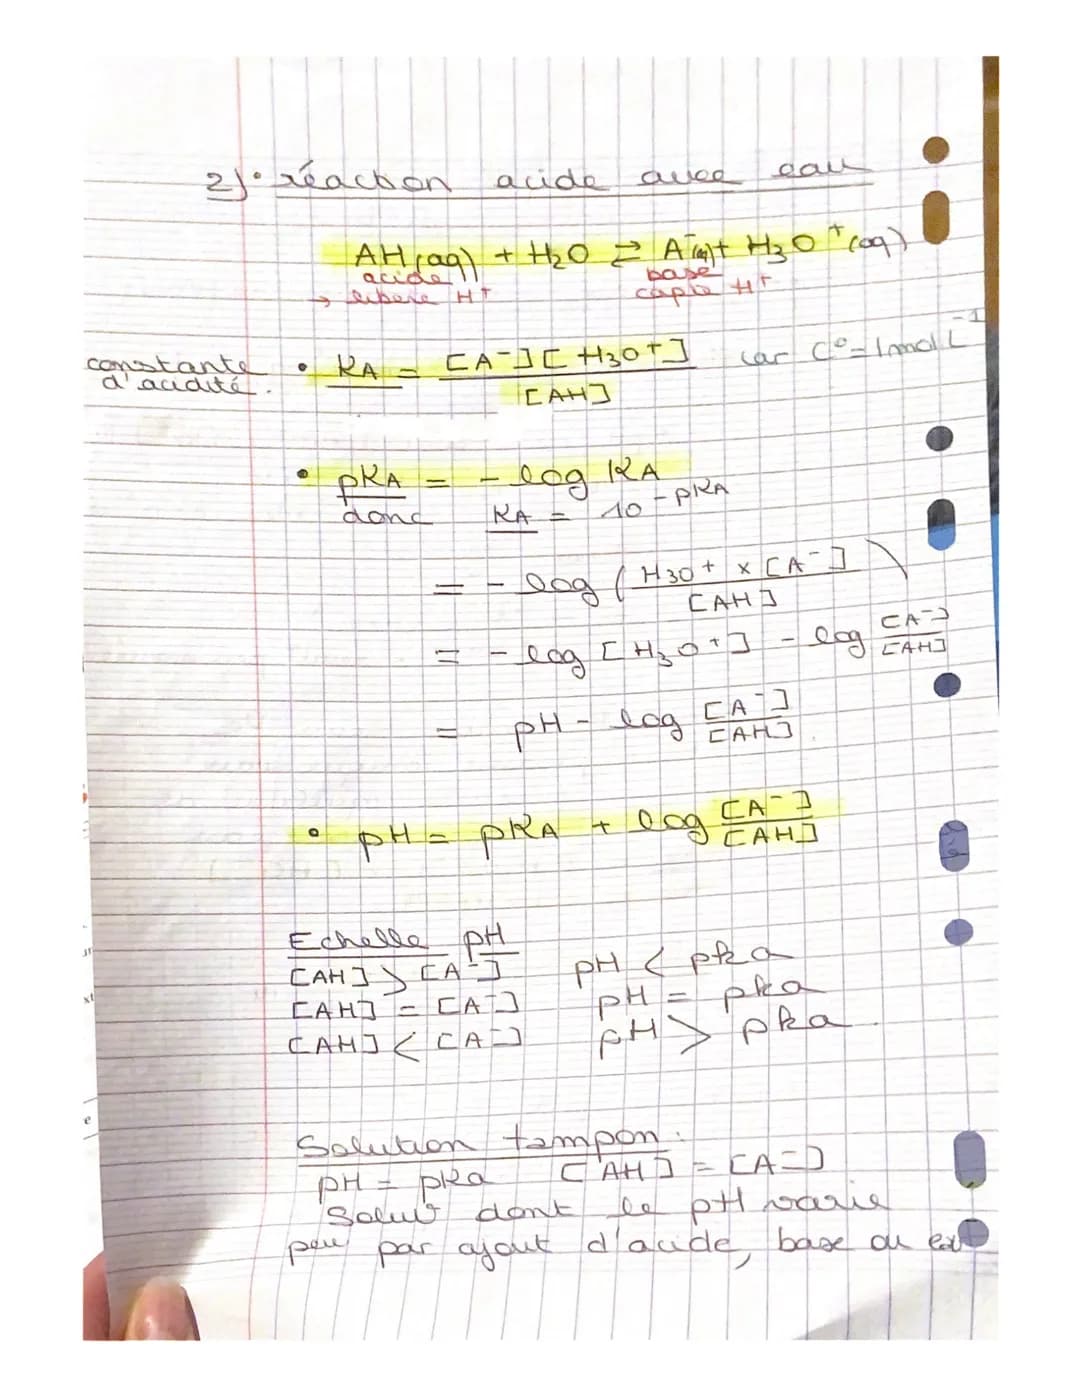 2)° réaction acide avec eau
AH(aq) + H₂O ⇄ A⁻(aq) + H₃O⁺(aq)
acide base
→ libère H⁺ capte H⁺
constante d'acidité. • KA = [A⁻][H₃O⁺] / [AH] car C° = 1 mol L⁻¹
• pKA = - log KA
donc KA = 10^-pKA
= - log (H₃O⁺ × [A⁻] / [AH])
= - log [H₃O⁺] - log [A⁻]/[AH]
= pH - log [A⁻]/[AH].
• pH = pKA + log [A⁻]/[AH]
Echelle pH
[AH] > [A⁻] pH < pka
[AH] = [A⁻] pH = pka
[AH] < [A⁻] pH > pka.
Solution tampon :
pH = pka [AH] = [A⁻]
Solut° dont le pH varie
peu par ajout d'acide, base ou